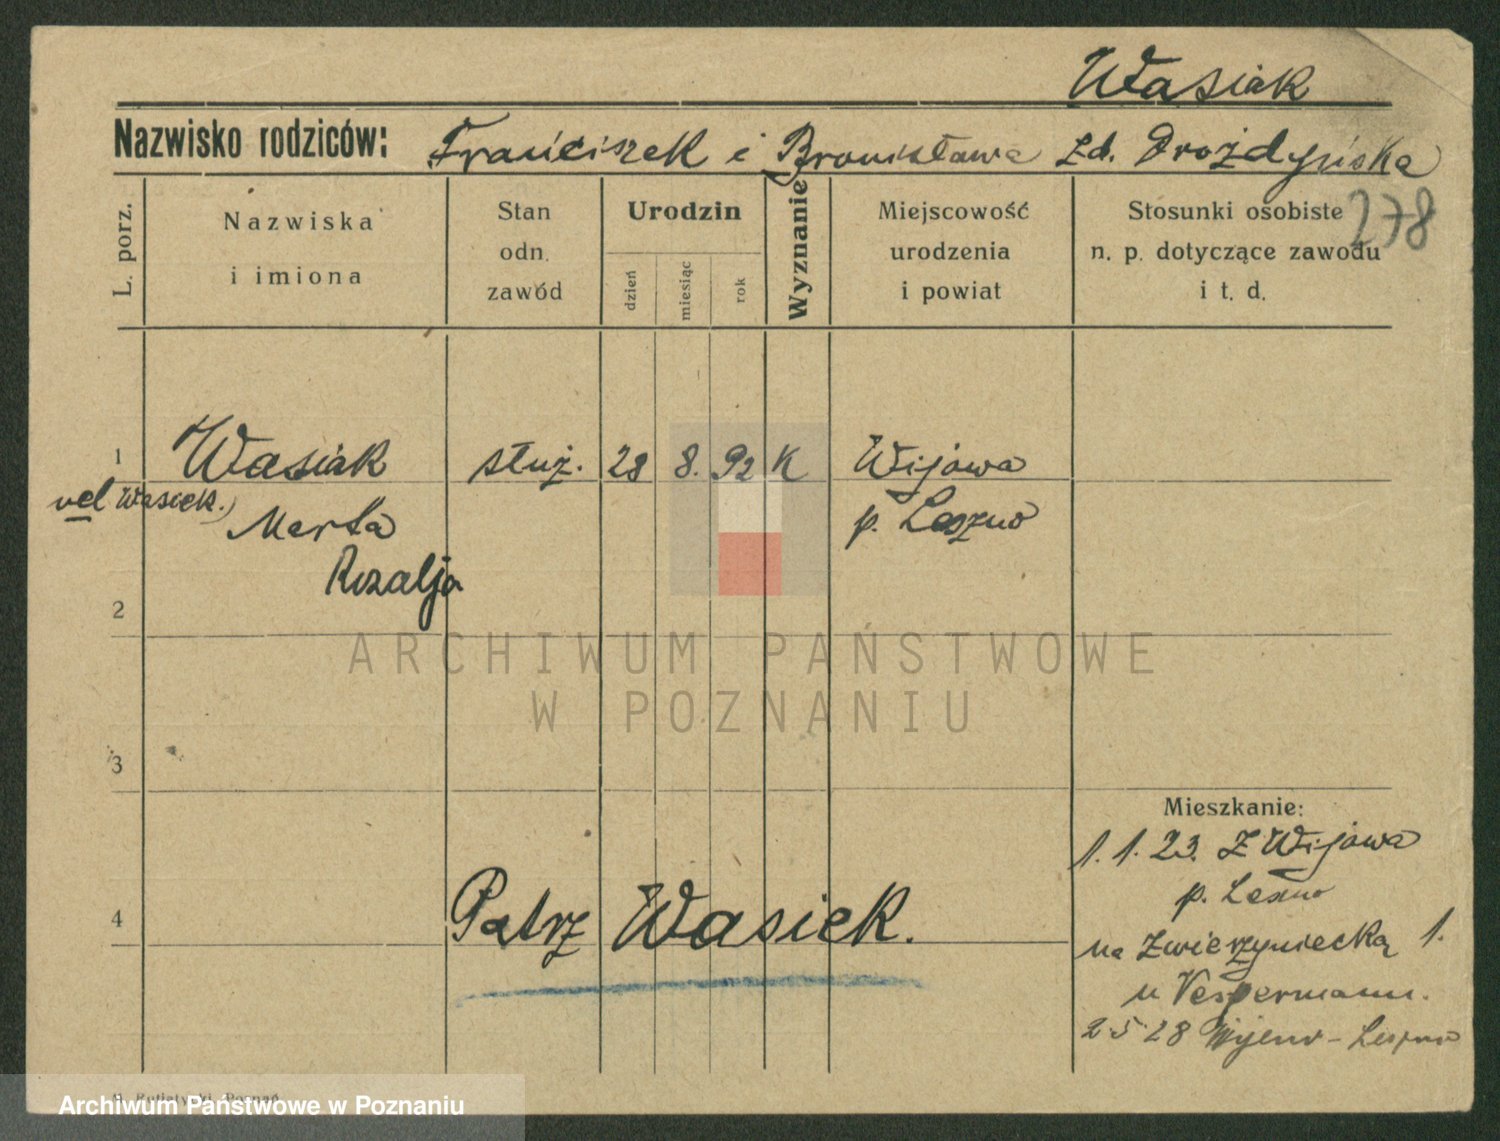 Wasiak
Nazwisko rodziców: Franciszek i Bronisława zd. Drożdyńska
278
L. porz.
Nazwiska
i imiona
Stan
odn.
zawód
Urodzin
dzień
miesiąc
rok
Wyznanie
Miejscowość
urodzenia
i powiat
Stosunki osobiste
n. p. dotyczące zawodu
i t. d.
1 Wasiak służ. 28 8. 92 K Wijowa
vel Wasiek.)
Marta p. Leszno
Rozalja
2
ARCHIWUM PAŃSTWOWE
W POZNANIU
3
Mieszkanie:
1. 1. 23. Z Wijowa
p. Leszno
4 Patrz Wasiek.
na Zwierzyniecką 1.
u Vespermann.
2 5 28 Wijewo - Leszno
Archiwum Państwowe w Poznaniu